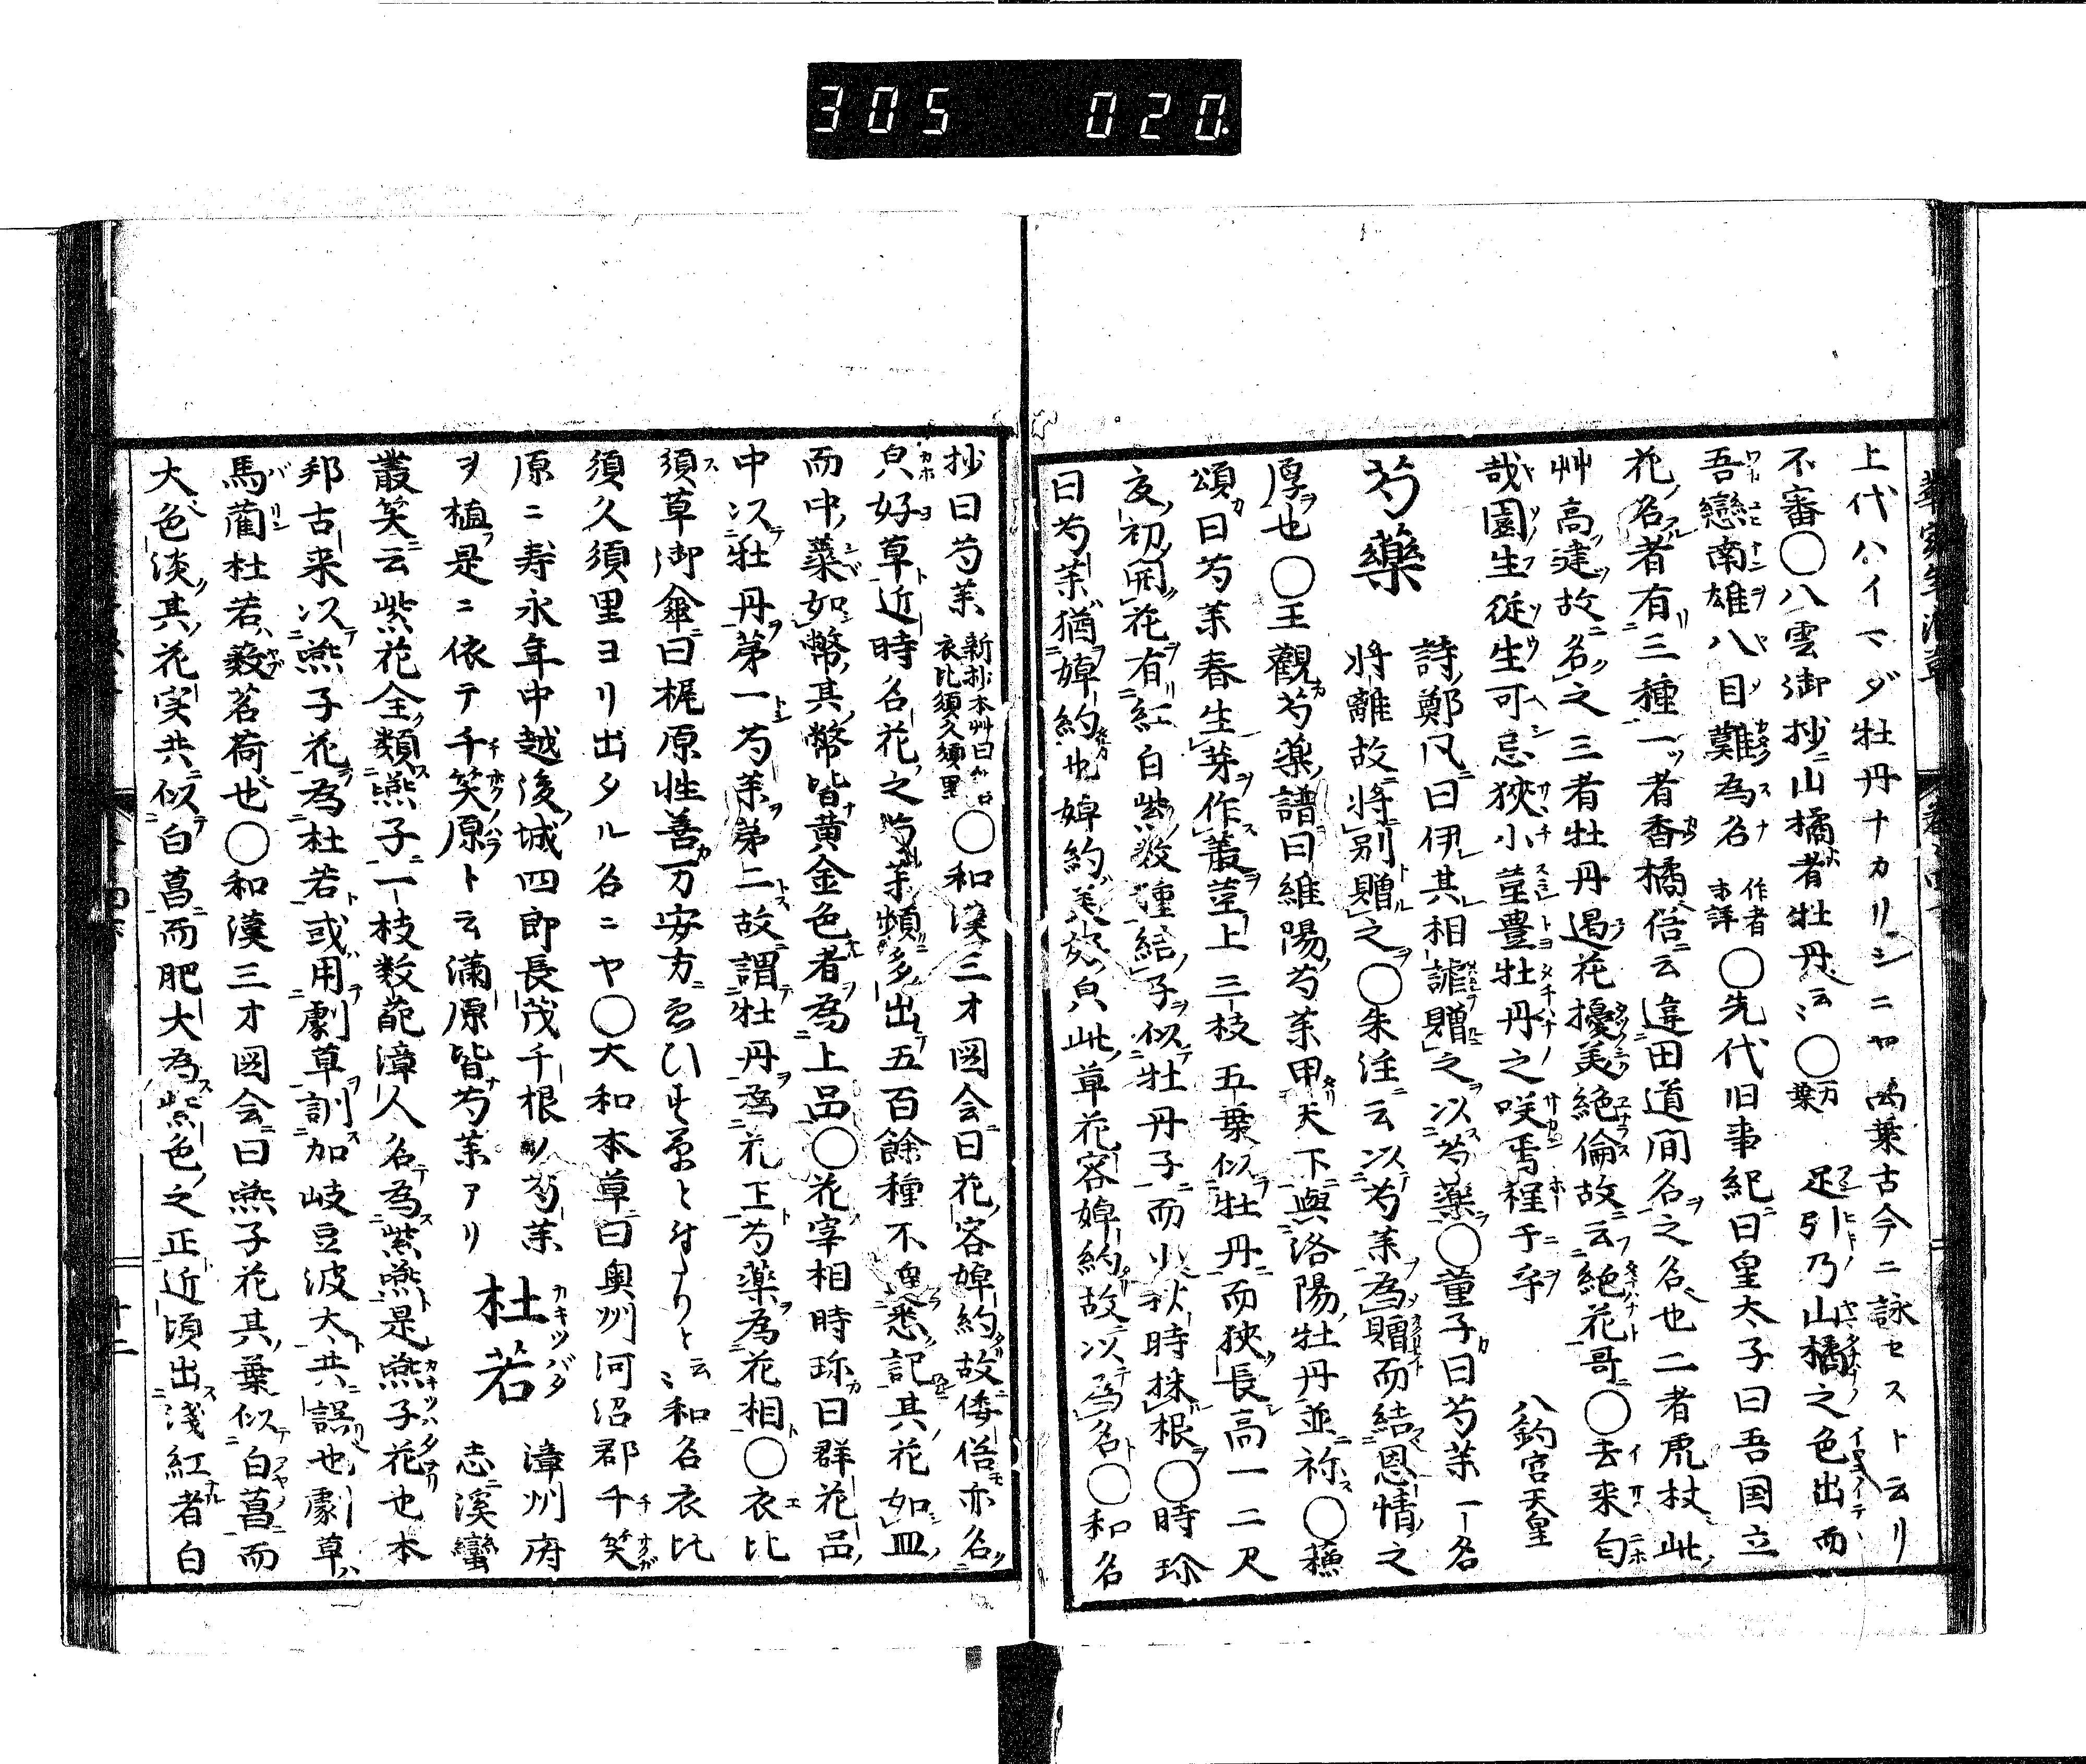 305 020
上代ハイマダ牡丹ナカリシニヤ万葉古今ニ詠セスト云リ
不審〇八雲御抄山橘者牡丹云〻〇万葉 足引乃山橘之色出而
吾戀南雄八目難為名 作者未詳 〇先代旧事紀曰皇太子曰吾国立
花名者有三種一者香橘俗云違田道間名之名也二者虎杖此
艸高建故名之三者牡丹遏花擾美絶倫故云絶花哥〇去来匂
哉園生従生可忌狹小莖豊牡丹之咲焉程千乎 八釣宮天皇
芍藥 詩鄭风曰伊其相謔贈之以芍藥〇董子曰芍薬一名
将離故将別贈之〇朱注云以芍薬為贈而結恩情之
厚也〇王觀芍薬譜曰維陽芍薬甲天下與洛陽牡丹並称〇蘓
頌曰芍薬春生芽作叢莖上三枝五葉似牡丹而狹長高一二尺
夏初開花有紅白紫数種結子似牡丹子而小秋時採根〇時珍
曰芍薬猶婥約也婥約美好皃此草花容婥約故以為名〇和名
抄曰芍薬 新抄本艸曰 衣比須久須里 〇和漢三才図会曰花容婥約故倭俗亦名
皃好草近時名花之芍薬頻多出五百餘種不遑悉記其花如皿
而中蘂如幣其幣皆黄金色者為上品〇花宰相時珍曰群花品
中以牡丹第一芍薬第二故謂牡丹為花王芍藥為花相〇衣比
須草御傘曰梶原性善万安方ゑひす草と付たりと云〻和名衣比
須久須里ヨリ出タル名ニヤ〇大和本草曰奥州河沼郡千笑
原ニ寿永年中越後城四郎長茂千根ノ芍薬
ヲ植是ニ依テ千笑原ト云満原皆芍薬アリ
杜若 漳州府
志溪蠻
叢笑云紫花全類燕子一枝数葩漳人名為紫燕是燕子花也本
邦古来以燕子花為杜若或用劇草訓加岐豆波太共誤也劇草ハ
馬藺杜若ハ薮茗荷也〇和漢三才図会曰燕子花其葉似白菖而
大色淡其花実共似白菖而肥大為紫色之正近頃出淺紅者白